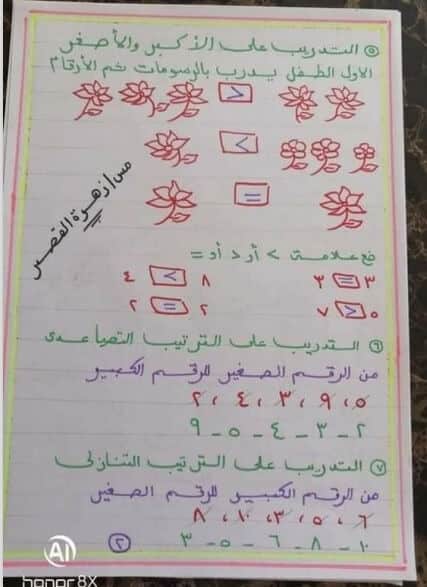 ٥ التدريب على الأكبر والأصغر
الأول الطفل يدرب بالرسومات ثم الأرقام
<
>
=
مس / زهرة القصر
ضع علامة > أو < أو =
٣ = ٣
٨ > ٤
٥ < ٧
٢ = ٢
٦ التدريب على الترتيب التصاعدى
من الرقم الصغير للرقم الكبير
٥ ، ٩ ، ٣ ، ٤ ، ٢
٢ - ٣ - ٤ - ٥ - ٩
٧ التدريب على الترتيب التنازلى
من الرقم الكبير للرقم الصغير
٦ ، ٥ ، ٣ ، ١٠ ، ٨
١٠ - ٨ - ٦ - ٥ - ٣
٢
AI
honor 8X